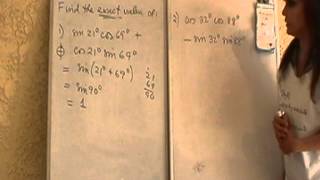 Find the exact value of:
1) sin 21° cos 69° +
cos 21° sin 69°
= sin(21° + 69°)
21
69
90
= sin 90°
= 1
2) cos 32° cos
- sin 32° sin